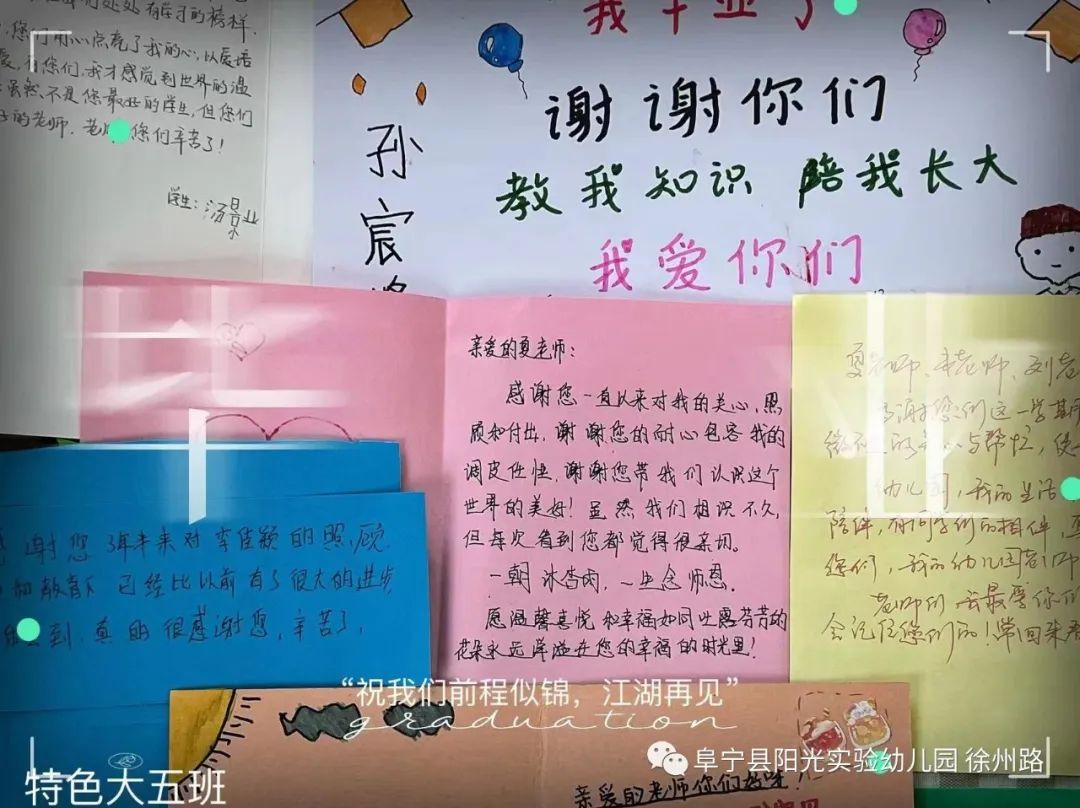 处处有学习的榜样.
您们用心点亮了我的心,以爱培
爱,有您们,我才感觉到世界的温
虽然、不是您最好的学生,但您们
好的老师.老师,您们辛苦了!
学生:汤景业
我毕业了
谢谢你们
教我知识 陪我长大
我爱你们
孙宸
亲爱的夏老师:
感谢您一直以来对我的关心,照
顾和付出,谢谢您的耐心包容我的
调皮任性,谢谢您带我们认识这个
世界的美好!虽然我们相识不久,
但每次看到您都觉得很亲切.
一朝沐杏雨,一生念师恩.
愿温馨喜悦和幸福如同吐露芬芳的
花朵永远洋溢在您的幸福的时光里!
谢您3年来对李佳颖的照顾
和教育 已经比以前有了很大的进步
到,真的很感谢您,辛苦了,
夏老师、老师、刘老
谢您们这一学期
关心与帮忙,使
幼儿园,我的生活
陪伴,有同学们的相伴,
您们,我的幼儿园老师
老师们 我最爱你们
会记住您们的!常回来看
“祝我们前程似锦,江湖再见”
graduation
亲爱的老师你们好呀!
阜宁县阳光实验幼儿园 徐州路
特色大五班